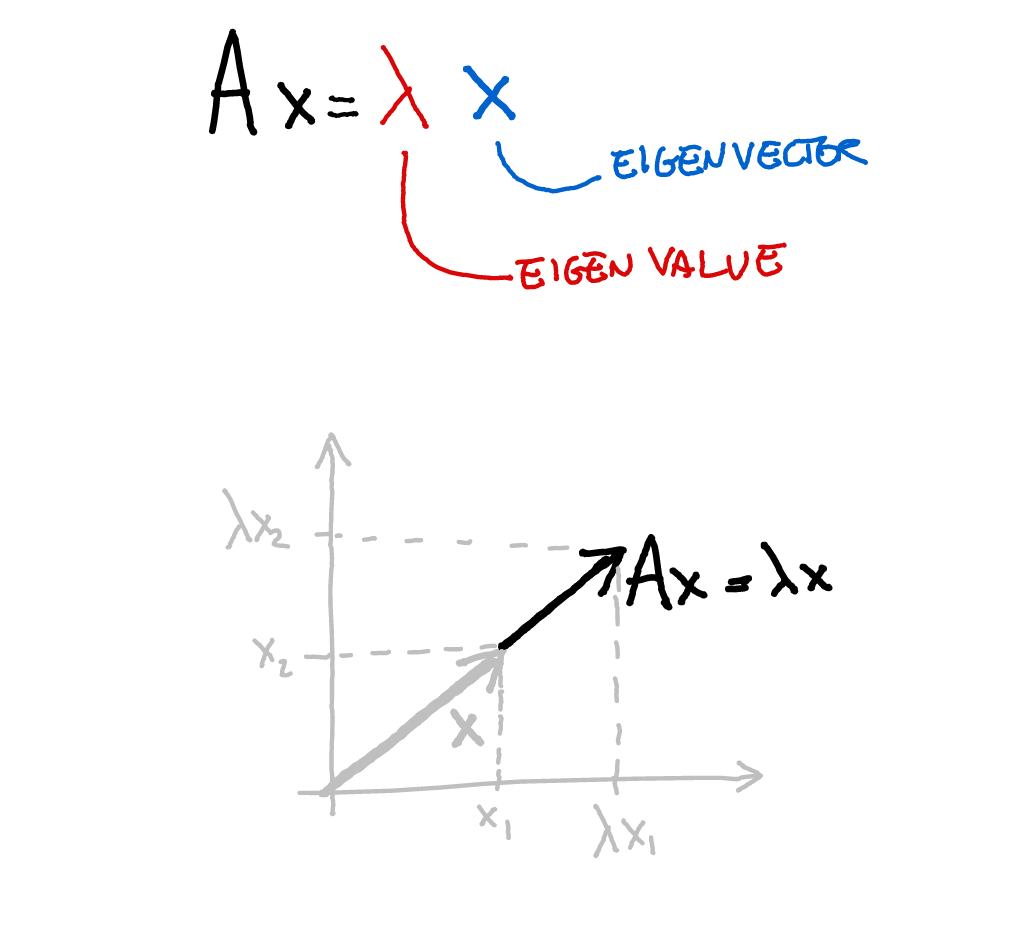 Ax = λ x
EIGENVECTOR
EIGEN VALUE
λx₂
Ax = λx
x₂
x
x₁
λx₁